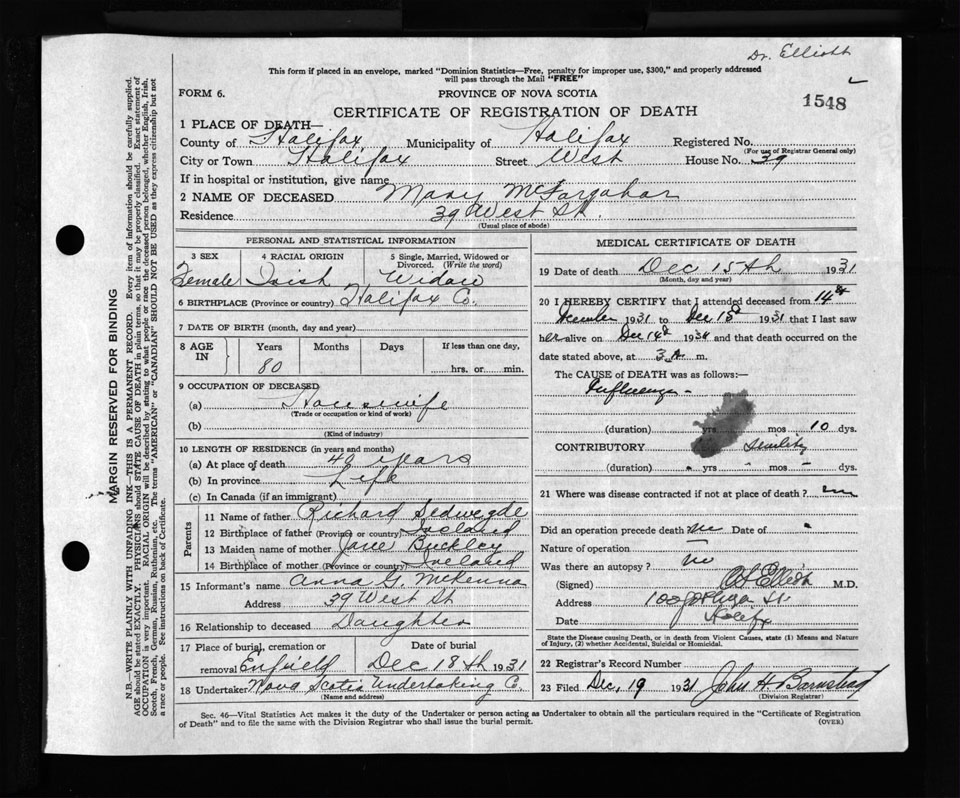 Dr. Elliott
This form if placed in an envelope, marked "Dominion Statistics—Free, penalty for improper use, $300," and properly addressed
will pass through the Mail "FREE"
FORM 6.
PROVINCE OF NOVA SCOTIA
1548
CERTIFICATE OF REGISTRATION OF DEATH
1 PLACE OF DEATH—
County of Halifax Municipality of Halifax Registered No.
(For use of Registrar General only)
City or Town Halifax Street West House No. 39
If in hospital or institution, give name
2 NAME OF DECEASED Mary McFargahar
Residence 39 West St.
(Usual place of abode)
MARGIN RESERVED FOR BINDING
N.B. WRITE PLAINLY WITH UNFADING INK—THIS IS A PERMANENT RECORD. Every item of information should be carefully supplied.
AGE should be stated EXACTLY. PHYSICIANS should STATE CAUSE OF DEATH in plain terms, so that it may be properly classified. Exact statement of
OCCUPATION is very important. RACIAL ORIGIN will be described by stating to what people or race the deceased person belonged, whether English, Irish,
Scotch, French, German, Russian, Ruthenian, etc. The terms "AMERICAN" or "CANADIAN" SHOULD NOT BE USED as they express citizenship but not
a race or people. See instructions on back of Certificate.
PERSONAL AND STATISTICAL INFORMATION
3 SEX 4 RACIAL ORIGIN 5 Single, Married, Widowed or
Divorced. (Write the word)
Female Irish Widow
6 BIRTHPLACE (Province or country) Halifax Co.
7 DATE OF BIRTH (month, day and year)
8 AGE IN Years Months Days If less than one day,
80 hrs. or min.
9 OCCUPATION OF DECEASED
(a) Housewife
(Trade or occupation or kind of work)
(b)
(Kind of industry)
10 LENGTH OF RESIDENCE (in years and months)
(a) At place of death 40 years
(b) In province Life
(c) In Canada (if an immigrant)
Parents
11 Name of father Richard
12 Birthplace of father (Province or country) Ireland
13 Maiden name of mother Jane Buckley
14 Birthplace of mother (Province or country) Ireland
15 Informant's name Anna G. McKenna
Address 39 West St
16 Relationship to deceased Daughter
17 Place of burial, cremation or Date of burial
removal Enfield Dec 18th 1931
18 Undertaker Nova Scotia Undertaking C.
(Name and address)
MEDICAL CERTIFICATE OF DEATH
19 Date of death Dec 15th 1931
(Month, day and year)
20 I HEREBY CERTIFY that I attended deceased from 14th
December 1931 to Dec 15th 1931 that I last saw
her alive on Dec 14th 1931 and that death occurred on the
date stated above, at 3 A m.
The CAUSE of DEATH was as follows:—
Influenza -
(duration) yrs mos 10 dys.
CONTRIBUTORY Senility
(duration) yrs mos dys.
21 Where was disease contracted if not at place of death?
Did an operation precede death no Date of
Nature of operation
Was there an autopsy? no
(Signed) Elliott M.D.
Address St.
Date Halifx
State the Disease causing Death, or in death from Violent Causes, state (1) Means and Nature
of Injury, (2) whether Accidental, Suicidal or Homicidal.
22 Registrar's Record Number
23 Filed Dec, 19 1931 John H Barnstead
(Division Registrar)
Sec. 46—Vital Statistics Act makes it the duty of the Undertaker or person acting as Undertaker to obtain all the particulars required in the "Certificate of Registration
of Death" and to file the same with the Division Registrar who shall issue the burial permit.
(OVER)